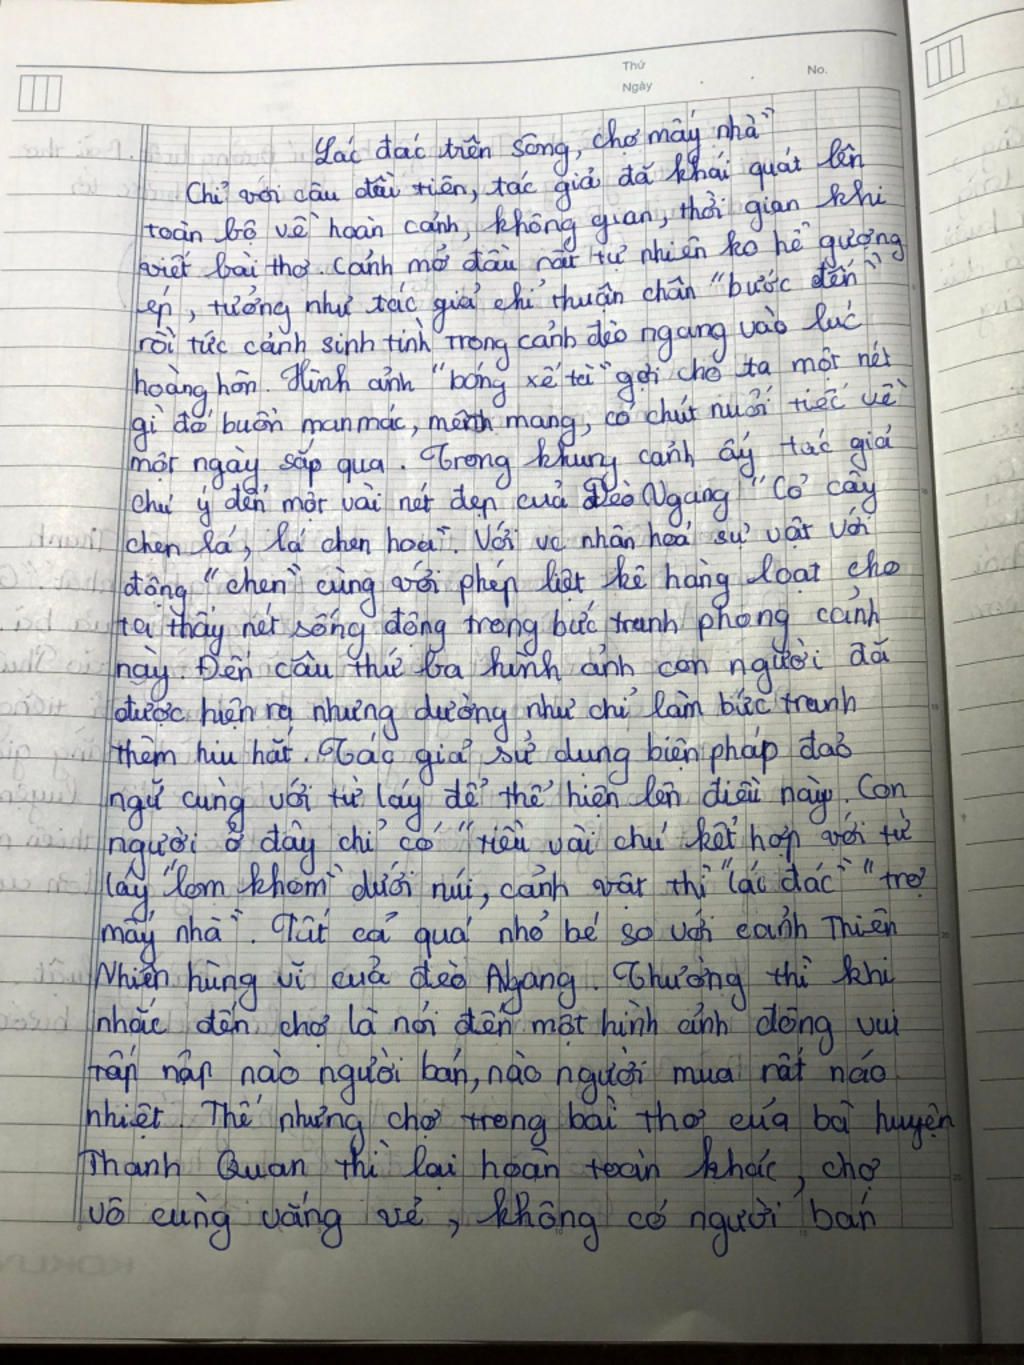 Thứ
Ngày
No.
Lác đác trên sông, chợ mấy nhà"
Chỉ với câu đầu tiên, tác giả đã khái quát lên
toàn bộ về hoàn cảnh, không gian, thời gian khi
viết bài thơ. Cảnh mở đầu rất tự nhiên ko hề gượng
ép, tưởng như tác giả chỉ thuận chân "bước đến"
rồi tức cảnh sinh tình trong cảnh đèo ngang vào lúc
hoàng hôn. Hình ảnh "bóng xế tà" gợi cho ta một nét
gì đó buồn man mác, mênh mang, có chút nuối tiếc về
một ngày sắp qua. Trong khung cảnh ấy tác giả
chú ý đến một vài nét đẹp của Đèo Ngang "Cỏ cây
chen lá, lá chen hoa". Với vc nhân hoá sự vật với
động "chen" cùng với phép liệt kê hàng loạt cho
ta thấy nét sống động trong bức tranh phong cảnh
này. Đến câu thứ ba hình ảnh con người đã
được hiện ra nhưng dường như chỉ làm bức tranh
thêm hiu hắt. Tác giả sử dung biện pháp đảo
ngữ cùng với từ láy để thể hiện lên điều này. Con
người ở đây chỉ có "tiều vài chú kết hợp với từ
láy "lom khom" dưới núi, cảnh vật thì "lác đác" "trợ
mấy nhà". Tất cả quá nhỏ bé so với cảnh Thiên
Nhiên hùng vĩ của đèo Ngang. Thường thì khi
nhắc đến chợ là nói đến một hình ảnh đông vui
tấp nập nào người bán, nào người mua rất náo
nhiệt. Thế nhưng chợ trong bài thơ của bà huyện
Thanh Quan thì lại hoàn toàn khác, chợ
vô cùng vắng vẻ, không có người bán